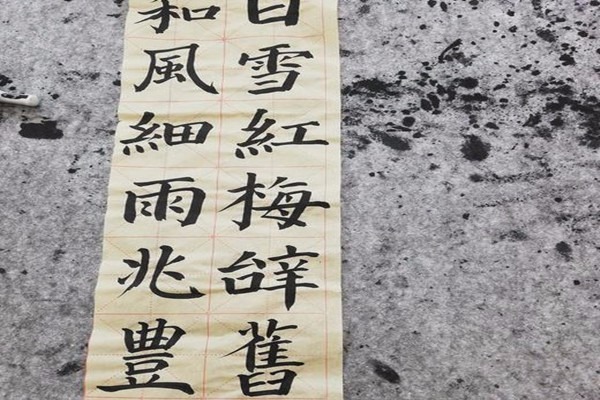 白雪紅梅辝舊
和風細雨兆豐